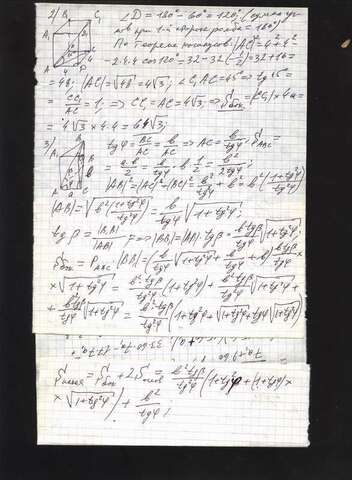 2) ∠D = 180° - 60° = 120°, (сумма уг-
лов при 1-ой стороне ромба = 180°)
По теореме косинусов |AC|² = 4² + 4² -
- 2·4·4 cos 120° = 32 - 32·(-1/2) = 32 + 16 =
= 48; |AC| = √48 = 4√3; ∠C₁AC = 45° ⇒ tg 45° =
= CC₁/AC = 1; ⇒ CC₁ = AC = 4√3; ⇒ Sбок = |CC₁|·4a =
= 4√3 × 4·4 = 64√3;
3) tgφ = BC/AC = b/AC ⇒ AC = b/tgφ; S_ABC =
= a·b/2 = b/tgφ · b · 1/2 = b²/2tgφ;
|AB|² = |AC|² + |BC|² = b²/tg²φ + b² = b² (1+tg²φ)/tg²φ
|AB| = √(b²(1+tg²φ)/tg²φ) = b/tgφ √(1+tg²φ);
tgβ = |BB₁|/|AB| ⇒ |BB₁| = |AB|·tgβ = b tgβ/tgφ √(1+tg²φ);
Sбок = P_ABC |BB₁| = (b/tgφ √(1+tg²φ) + b/tgφ + b) b tgβ/tgφ ×
× √(1+tg²φ) = b² tgβ/tg²φ (1+tg²φ) + b² tgβ/tg²φ √(1+tg²φ) +
+ b² tgβ/tgφ √(1+tg²φ) = b² tgβ/tg²φ (1+tg²φ+√(1+tg²φ)+tgφ√(1+tg²φ))
Sполн = Sбок + 2Sосн = b² tgβ/tg²φ (1+tg²φ + (1+tgφ) ×
× √(1+tg²φ)) + b²/tgφ;